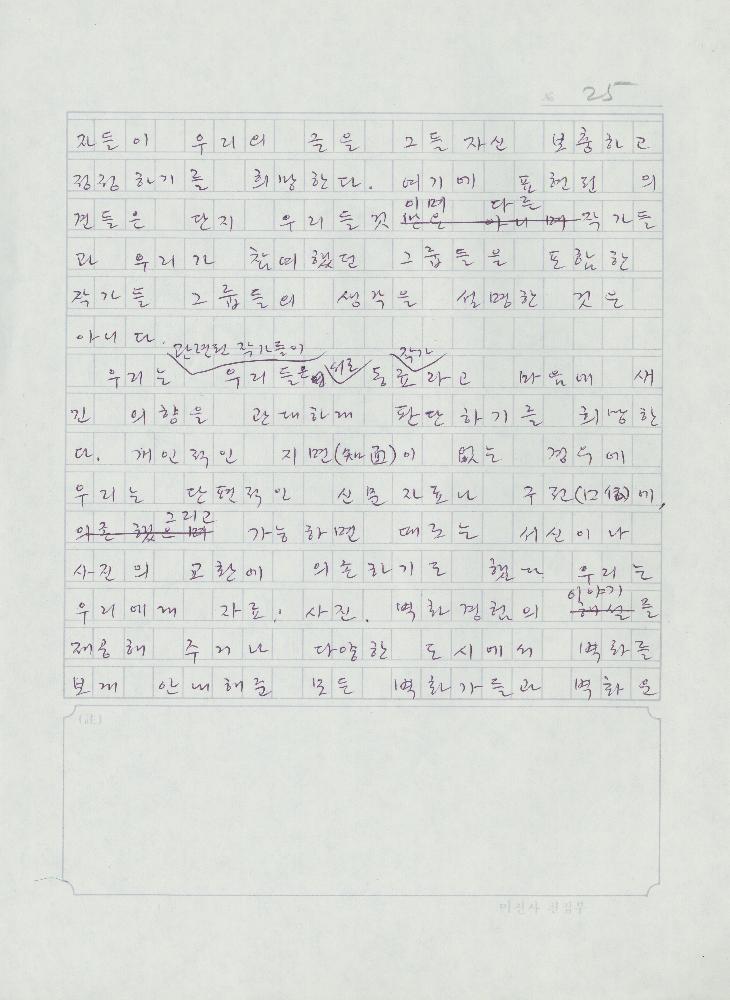 № 25
자들이 우리의 글을 그들 자신 보충하고
정정하기를 희망한다. 여기에 표현된 의
이며 다른
견들은 단지 우리들것 뿐은 아니며 작가들
과 우리가 참여했던 그룹들을 포함한
작가들 그룹들의 생각을 설명한 것은
아니다.
관련된 작가들이 서로 작가
우리는 우리들은 동료라고 마음에 새
긴 의향을 관대하게 판단하기를 희망한
다. 개인적인 지면(知面)이 없는 경우에
우리는 단편적인 신문자료나 구전(口傳)에,
그리고
의존했으며 가능하면 때로는 서신이나
사진의 교환에 의존하기도 했다 우리는
이야기
우리에게 자료, 사진, 벽화경험의 해설를
제공해 주거나 다양한 도시에서 벽화를
보게 안내해준 모든 벽화가들과 벽화운
(註)
미진사 편집부